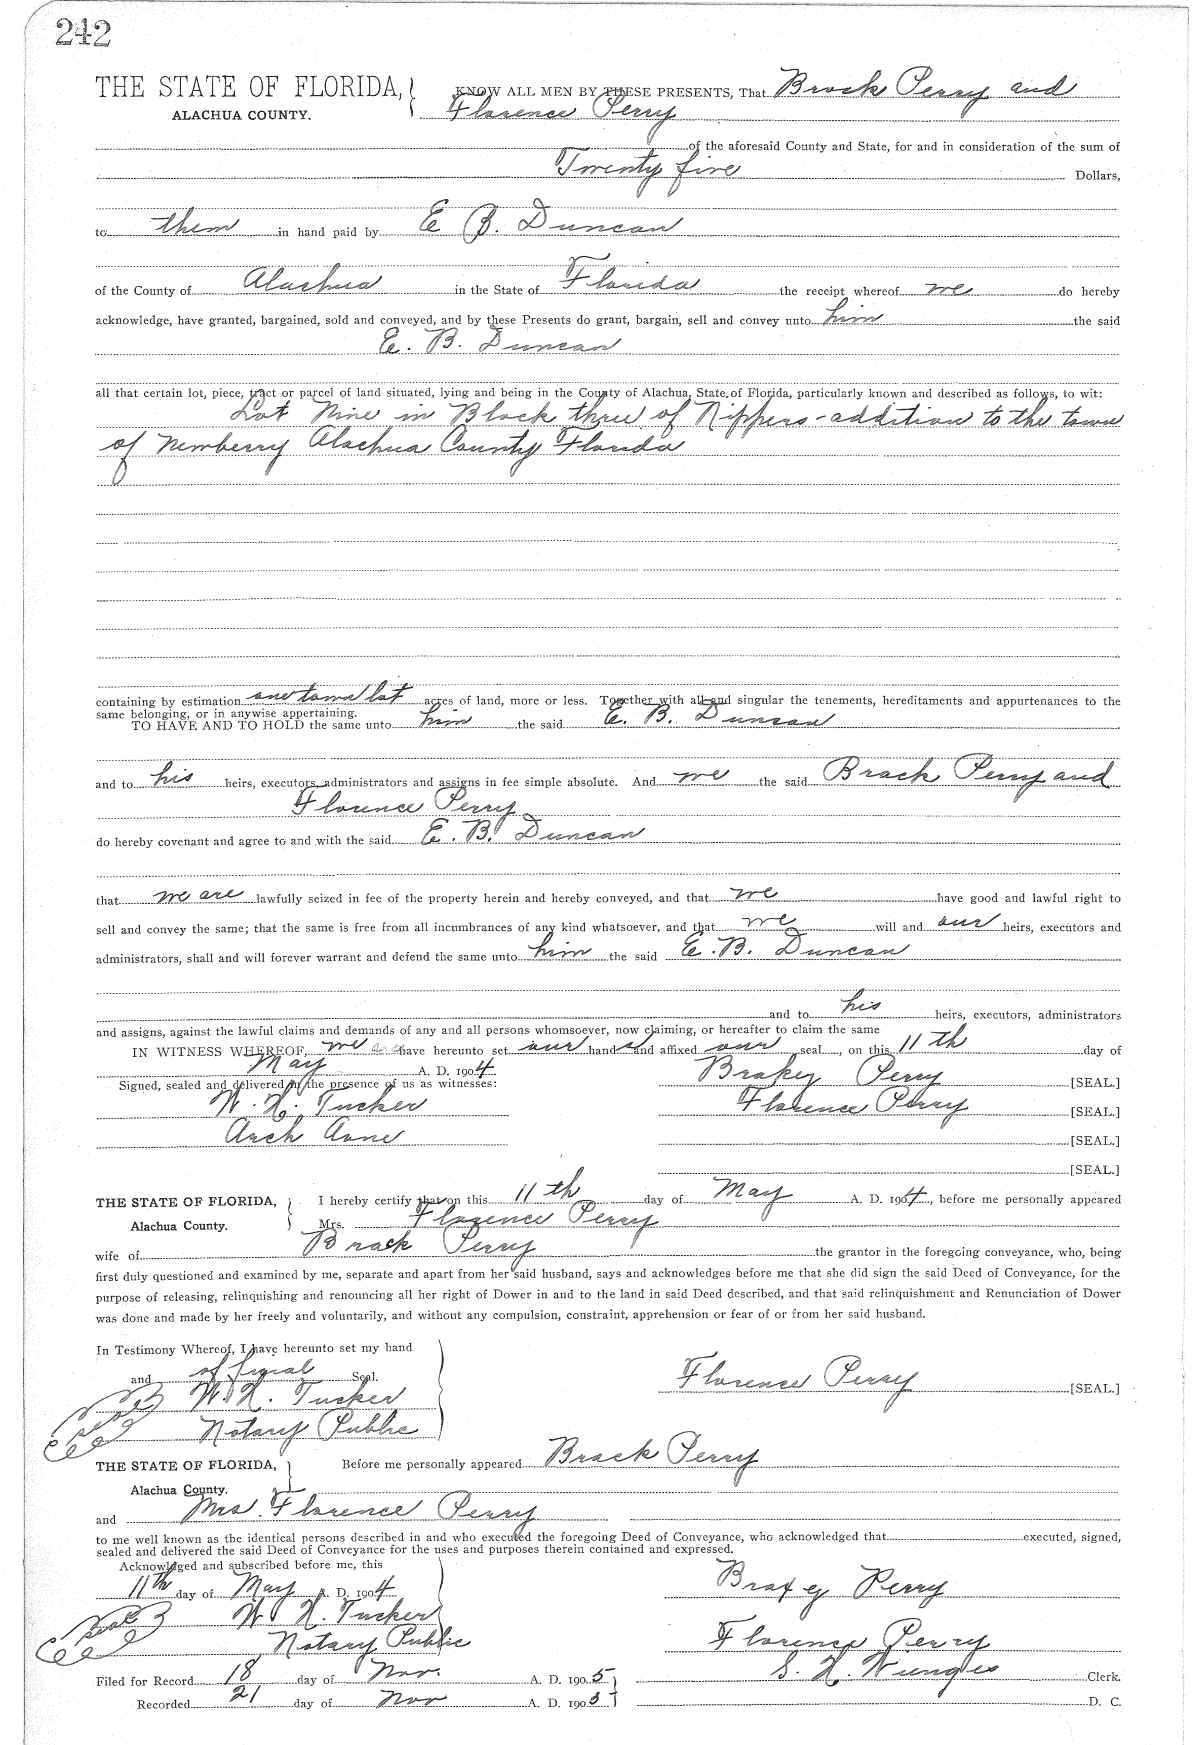 242
THE STATE OF FLORIDA,
ALACHUA COUNTY.
KNOW ALL MEN BY THESE PRESENTS, That Brack Perry and
Florence Perry
of the aforesaid County and State, for and in consideration of the sum of
Twenty five Dollars,
to them in hand paid by E B. Duncan
of the County of Alachua in the State of Florida the receipt whereof we do hereby
acknowledge, have granted, bargained, sold and conveyed, and by these Presents do grant, bargain, sell and convey unto him the said
E. B. Duncan
all that certain lot, piece, tract or parcel of land situated, lying and being in the County of Alachua, State of Florida, particularly known and described as follows, to wit:
Lot Nine in Block three of Nippers-addition to the town
of Newberry Alachua County Florida
containing by estimation one town lot acres of land, more or less. Together with all and singular the tenements, hereditaments and appurtenances to the
same belonging, or in anywise appertaining.
TO HAVE AND TO HOLD the same unto him the said E. B. Duncan
and to his heirs, executors, administrators and assigns in fee simple absolute. And we the said Brack Perry and
Florence Perry
do hereby covenant and agree to and with the said E. B. Duncan
that we are lawfully seized in fee of the property herein and hereby conveyed, and that we have good and lawful right to
sell and convey the same; that the same is free from all incumbrances of any kind whatsoever, and that we will and our heirs, executors and
administrators, shall and will forever warrant and defend the same unto him the said E. B. Duncan
and to his heirs, executors, administrators
and assigns, against the lawful claims and demands of any and all persons whomsoever, now claiming, or hereafter to claim the same
IN WITNESS WHEREOF, we have hereunto set our hands and affixed our seal, on this 11th day of
May A. D. 1904
Signed, sealed and delivered in the presence of us as witnesses:
Brakey Perry [SEAL.]
W. H. Tucker
Florence Perry [SEAL.]
Arch
[SEAL.]
[SEAL.]
THE STATE OF FLORIDA,
Alachua County.
I hereby certify that on this 11th day of May A. D. 1904, before me personally appeared
Mrs. Florence Perry
wife of Brack Perry the grantor in the foregoing conveyance, who, being
first duly questioned and examined by me, separate and apart from her said husband, says and acknowledges before me that she did sign the said Deed of Conveyance, for the
purpose of releasing, relinquishing and renouncing all her right of Dower in and to the land in said Deed described, and that said relinquishment and Renunciation of Dower
was done and made by her freely and voluntarily, and without any compulsion, constraint, apprehension or fear of or from her said husband.
In Testimony Whereof, I have hereunto set my hand
and official Seal.
Florence Perry [SEAL.]
seal W. H. Tucker
Notary Public
THE STATE OF FLORIDA,
Alachua County.
Before me personally appeared Brack Perry
and Mrs. Florence Perry
to me well known as the identical persons described in and who executed the foregoing Deed of Conveyance, who acknowledged that executed, signed,
sealed and delivered the said Deed of Conveyance for the uses and purposes therein contained and expressed.
Acknowledged and subscribed before me, this
11th day of May A. D. 1904
Braxey Perry
seal W H. Tucker
Notary Public
Florence Perry
Filed for Record 18 day of Nov. A. D. 1905
S. H. Wienges Clerk.
Recorded 21 day of Nov A. D. 1905
D. C.